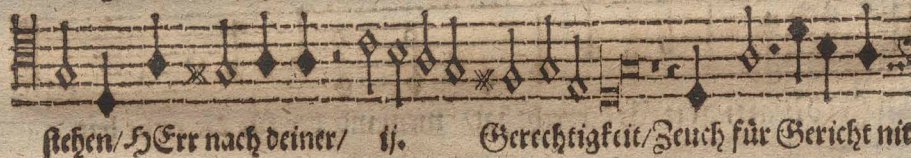 stehen/ HErr nach deiner/ ij. Gerechtigkeit/ Zeuch für Gericht nit